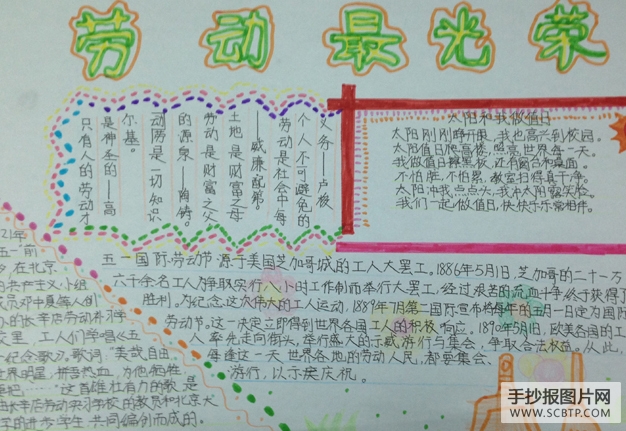 劳动最光荣
只有人的劳动才
是神圣的——高
尔基。
动劳是一切知识
的源泉——陶铸。
劳动是财富之父
土地是财富之母
——威廉配第。
劳动是社会中每
个人不可避免的
义务——卢梭
太阳和我做值日
太阳刚刚睁开眼,我也高兴到校园。
太阳值日爬高楼,照亮世界每一天。
我做值日擦黑板,还有窗台和桌面。
不怕脏,不怕累,教室扫得真干净。
太阳冲我点点头,我冲太阳露笑脸。
我们一起做值日,快快乐乐常相伴。
五一国际劳动节源于美国芝加哥城的工人大罢工。1886年5月1日,芝加哥的二十一万
六千余名工人为争取实行八小时工作制而举行大罢工,经过艰苦的流血斗争,终于获得了
胜利。为纪念这次伟大的工人运动,1889年7月第二国际宣布将每年的五月一日定为国际
劳动节。这一决定立即得到世界各国工人的积极响应。1890年5月1日,欧美各国的工
人率先走向街头,举行盛大的示威游行与集会,争取合法权益。从此,
每逢这一天世界各地的劳动人民都要集会、
游行,以示庆祝。
21年
五一"前
在北京
的共产主义小组
成员邓中夏等人创
办的长辛店劳动补习学
校里,工人们学唱《五
一纪念歌》。歌词"美哉自由,
世界明星,拼吾热血,为他牺牲
"这首雄壮有力的歌是
由长辛店劳动实习学校的教员和北京大
学的进步学生共同编创而成的。
手抄报图片网
WWW.SCBTP.COM